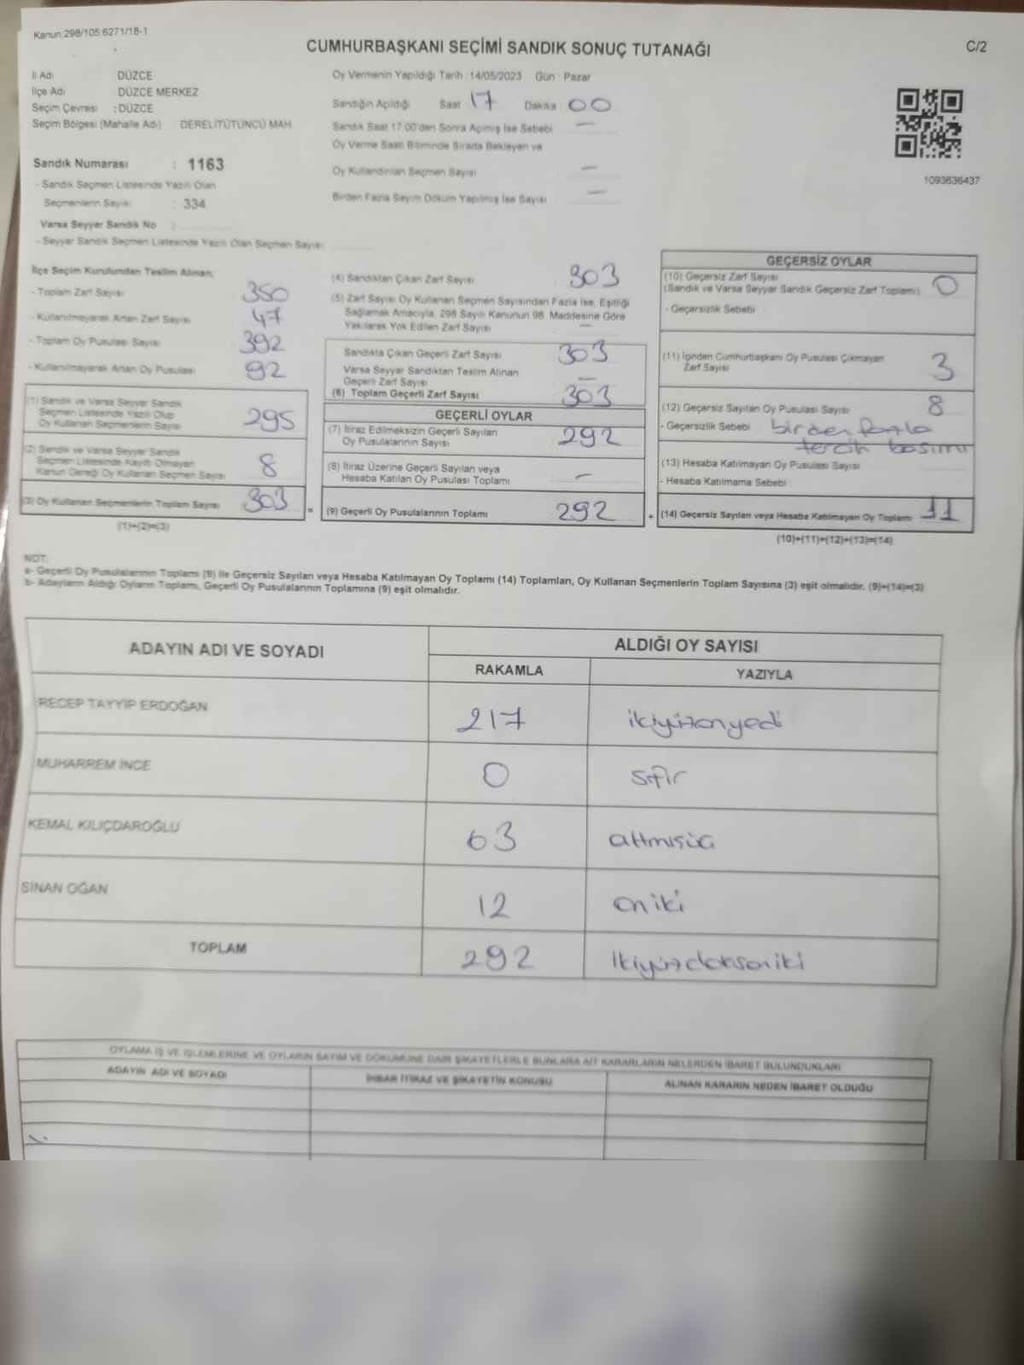 Kanun:298/105.6271/18-1
CUMHURBAŞKANI SEÇİMİ SANDIK SONUÇ TUTANAĞI
C/2
İl Adı DÜZCE
İlçe Adı DÜZCE MERKEZ
Seçim Çevresi : DÜZCE
Seçim Bölgesi (Mahalle Adı) DERELİTÜTÜNCÜ MAH.
Oy Vermenin Yapıldığı Tarih :14/05/2023 Gün : Pazar
Sandığın Açıldığı Saat 17 Dakika 00
Sandık Saat 17:00'den Sonra Açılmış İse Sebebi —
Oy Verme Saati Bitiminde Sırada Bekleyen ve
Oy Kullandırılan Seçmen Sayısı —
Birden Fazla Sayım Döküm Yapılmış İse Sayısı —
1093636437
Sandık Numarası : 1163
- Sandık Seçmen Listesinde Yazılı Olan
Seçmenlerin Sayısı : 334
Varsa Seyyar Sandık No :
- Seyyar Sandık Seçmen Listesinde Yazılı Olan Seçmen Sayısı
İlçe Seçim Kurulundan Teslim Alınan;
- Toplam Zarf Sayısı 350
- Kullanılmayarak Artan Zarf Sayısı 47
- Toplam Oy Pusulası Sayısı 392
- Kullanılmayarak Artan Oy Pusulası 92
(1) Sandık ve Varsa Seyyar Sandık
Seçmen Listesinde Yazılı Olup
Oy Kullanan Seçmenlerin Sayısı 295
(2) Sandık ve Varsa Seyyar Sandık
Seçmen Listesinde Kayıtlı Olmayan
Kanun Gereği Oy Kullanan Seçmen Sayısı 8
(3) Oy Kullanan Seçmenlerin Toplam Sayısı 303
(1)+(2)=(3)
=
(4) Sandıktan Çıkan Zarf Sayısı 303
(5) Zarf Sayısı Oy Kullanan Seçmen Sayısından Fazla İse, Eşitliği
Sağlamak Amacıyla, 298 Sayılı Kanunun 98. Maddesine Göre
Yakılarak Yok Edilen Zarf Sayısı —
Sandıkta Çıkan Geçerli Zarf Sayısı 303
Varsa Seyyar Sandıktan Teslim Alınan
Geçerli Zarf Sayısı —
(6) Toplam Geçerli Zarf Sayısı 303
GEÇERLİ OYLAR
(7) İtiraz Edilmeksizin Geçerli Sayılan
Oy Pusulalarının Sayısı 292
(8) İtiraz Üzerine Geçerli Sayılan veya
Hesaba Katılan Oy Pusulası Toplamı —
(9) Geçerli Oy Pusulalarının Toplamı 292
+
GEÇERSİZ OYLAR
(10) Geçersiz Zarf Sayısı
(Sandık ve Varsa Seyyar Sandık Geçersiz Zarf Toplamı) 0
- Geçersizlik Sebebi :
(11) İçinden Cumhurbaşkanı Oy Pusulası Çıkmayan
Zarf Sayısı 3
(12) Geçersiz Sayılan Oy Pusulası Sayısı 8
- Geçersizlik Sebebi : birden fazla
tercih basımı
(13) Hesaba Katılmayan Oy Pusulası Sayısı
- Hesaba Katılmama Sebebi :
(14) Geçersiz Sayılan veya Hesaba Katılmayan Oy Toplamı 11
(10)+(11)+(12)+(13)=(14)
NOT:
a- Geçerli Oy Pusulalarının Toplamı (9) ile Geçersiz Sayılan veya Hesaba Katılmayan Oy Toplamı (14) Toplamları, Oy Kullanan Seçmenlerin Toplam Sayısına (3) eşit olmalıdır. (9)+(14)=(3)
b- Adayların Aldığı Oyların Toplamı, Geçerli Oy Pusulalarının Toplamına (9) eşit olmalıdır.
ADAYIN ADI VE SOYADI
ALDIĞI OY SAYISI
RAKAMLA YAZIYLA
RECEP TAYYİP ERDOĞAN 217 ikiyüzonyedi
MUHARREM İNCE 0 sıfır
KEMAL KILIÇDAROĞLU 63 altmışüç
SİNAN OĞAN 12 oniki
TOPLAM 292 ikiyüzdoksaniki
OYLAMA İŞ VE İŞLEMLERİNE VE OYLARIN SAYIM VE DÖKÜMÜNE DAİR ŞİKAYETLERLE BUNLARA AİT KARARLARIN NELERDEN İBARET BULUNDUKLARI
ADAYIN ADI VE SOYADI
İHBAR İTİRAZ VE ŞİKAYETİN KONUSU
ALINAN KARARIN NEDEN İBARET OLDUĞU